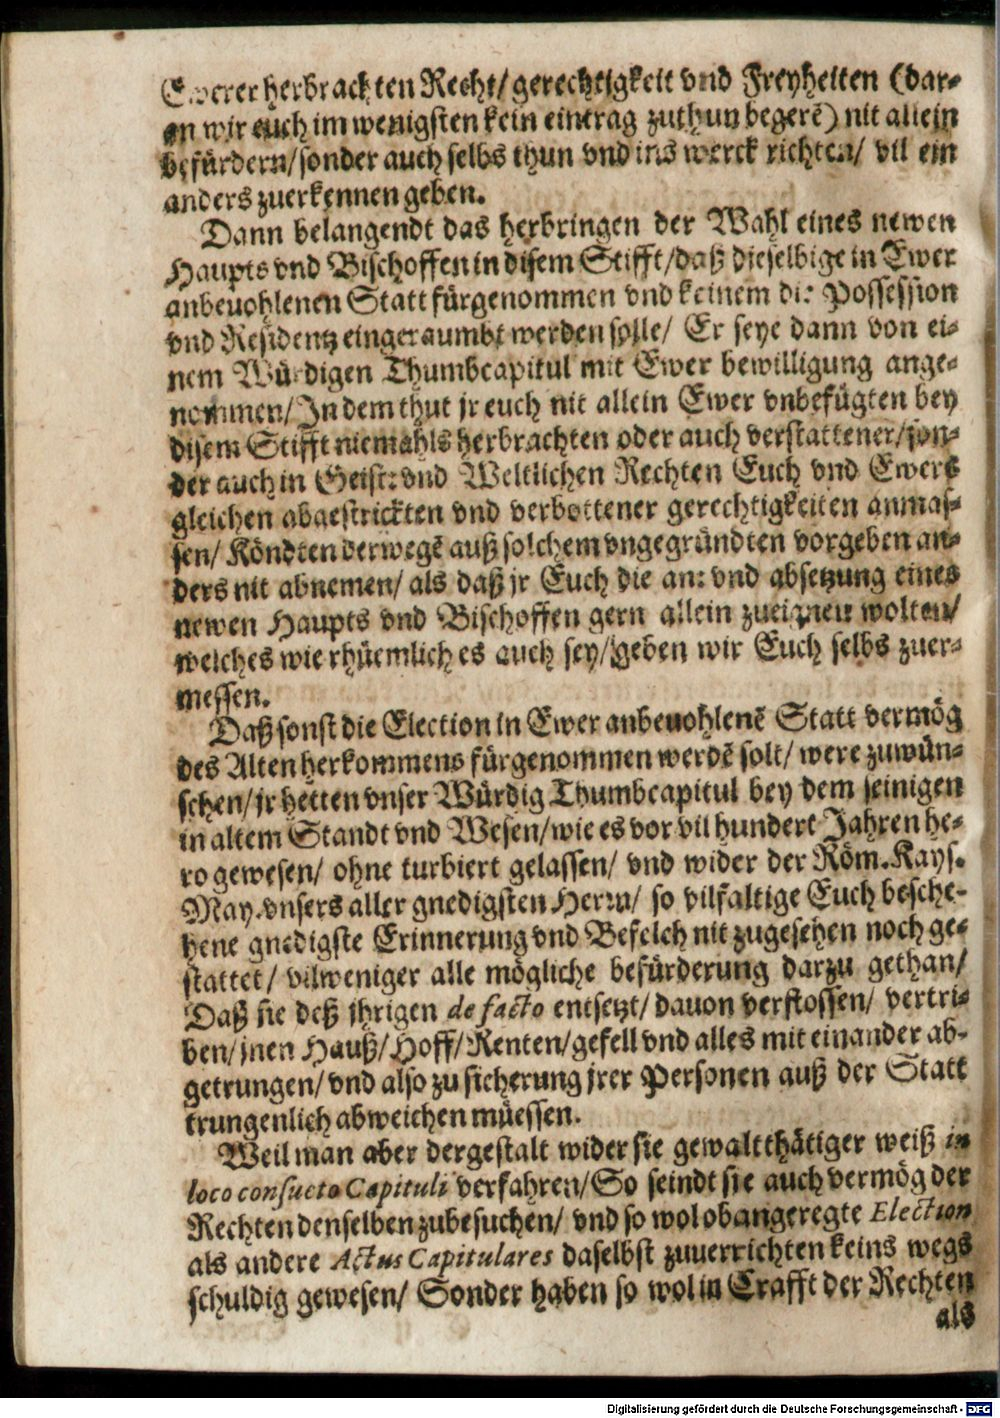 Ewerer herbrachten Recht/ gerechtigkeit vnd Freyheiten (dar-
an wir euch im wenigsten kein eintrag zuthun begerē) nit allein
befürdern/ sonder auch selbs thun vnd ins werck richten/ vil ein
anders zuerkennen geben.
Dann belangendt das herbringen der Wahl eines newen
Haupts vnd Bischoffen in disem Stifft/ daß dieselbige in Ewer
anbeuohlenen Statt fürgenommen vnd keinem die Possession
vnd Residentz eingeraumbt werden solle/ Er seye dann von ei-
nem Würdigen Thumbcapitul mit Ewer bewilligung ange-
nommen/ In dem thut jr euch nit allein Ewer vnbefügten bey
disem Stifft niemahls herbrachten oder auch verstattener/ son-
der auch in Geist: vnd Weltlichen Rechten Euch vnd Ewers
gleichen abgestrickten vnd verbottener gerechtigkeiten anmas-
sen/ Köndten derwegē auß solchem vngegründten vorgeben an-
ders nit abnemen/ als daß jr Euch die an: vnd absetzung eines
newen Haupts vnd Bischoffen gern allein zueignen wolten/
welches wie rhüemlich es auch sey/ geben wir Euch selbs zuer-
messen.
Daß sonst die Election in Ewer anbeuohlenē Statt vermög
des Alten herkommens fürgenommen werdē solt/ were zuwün-
schen/ jr hetten vnser Würdig Thumbcapitul bey dem seinigen
in altem Standt vnd Wesen/ wie es vor vil hundert Jahren he-
ro gewesen/ ohne turbiert gelassen/ vnd wider der Röm. Kays.
May. vnsers aller gnedigsten Herrn/ so vilfaltige Euch besche-
hene gnedigste Erinnerung vnd Befelch nit zugesehen noch ge-
stattet/ vilweniger alle mögliche befürderung darzu gethan/
Daß sie deß jhrigen de facto entsetzt/ dauon verstossen/ vertri-
ben/ jnen Hauß/ Hoff/ Renten/ gefell vnd alles mit einander ab-
getrungen/ vnd also zu sicherung jrer Personen auß der Statt
trungenlich abweichen müessen.
Weil man aber dergestalt wider sie gewaltthätiger weiß in
loco consueto Capituli verfahren/ So seindt sie auch vermög der
Rechten denselben zubesuchen/ vnd so wol obangeregte Election
als andere Actus Capitulares daselbst zuuerrichten keins wegs
schuldig gewesen/ Sonder haben so wol in Crafft der Rechten
als
Digitalisierung gefördert durch die Deutsche Forschungsgemeinschaft - DFG